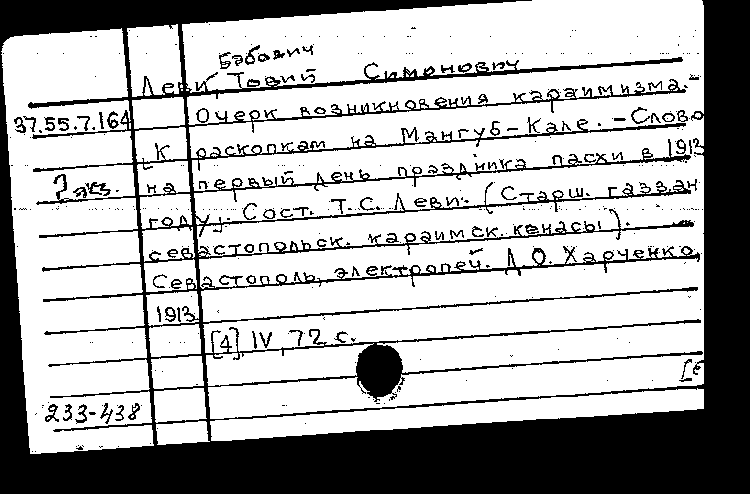 Бабович
Леви, Товий Симонович
37.55.7.164 Очерк возникновения караимизма.-
[К раскопкам на Мангуб-Кале. - Слово
2 экз. на первый день праздника пасхи в 1913
году]. Сост. Т.С. Леви. (Старш. газзан
севастопольск. караимск. кенасы).
Севастополь, электропеч. Д.О. Харченко,
1913
[4], IV, 72 с.
233-438